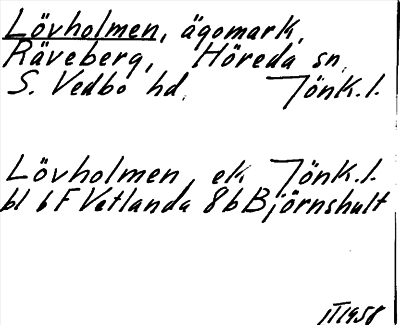 Lövholmen, ägomark,
Räveberg, Höreda sn,
S. Vedbo hd. Jönk.l.
Lövholmen, ek Jönk.l.
bl 6F Vetlanda 8b Björnshult
III 1958